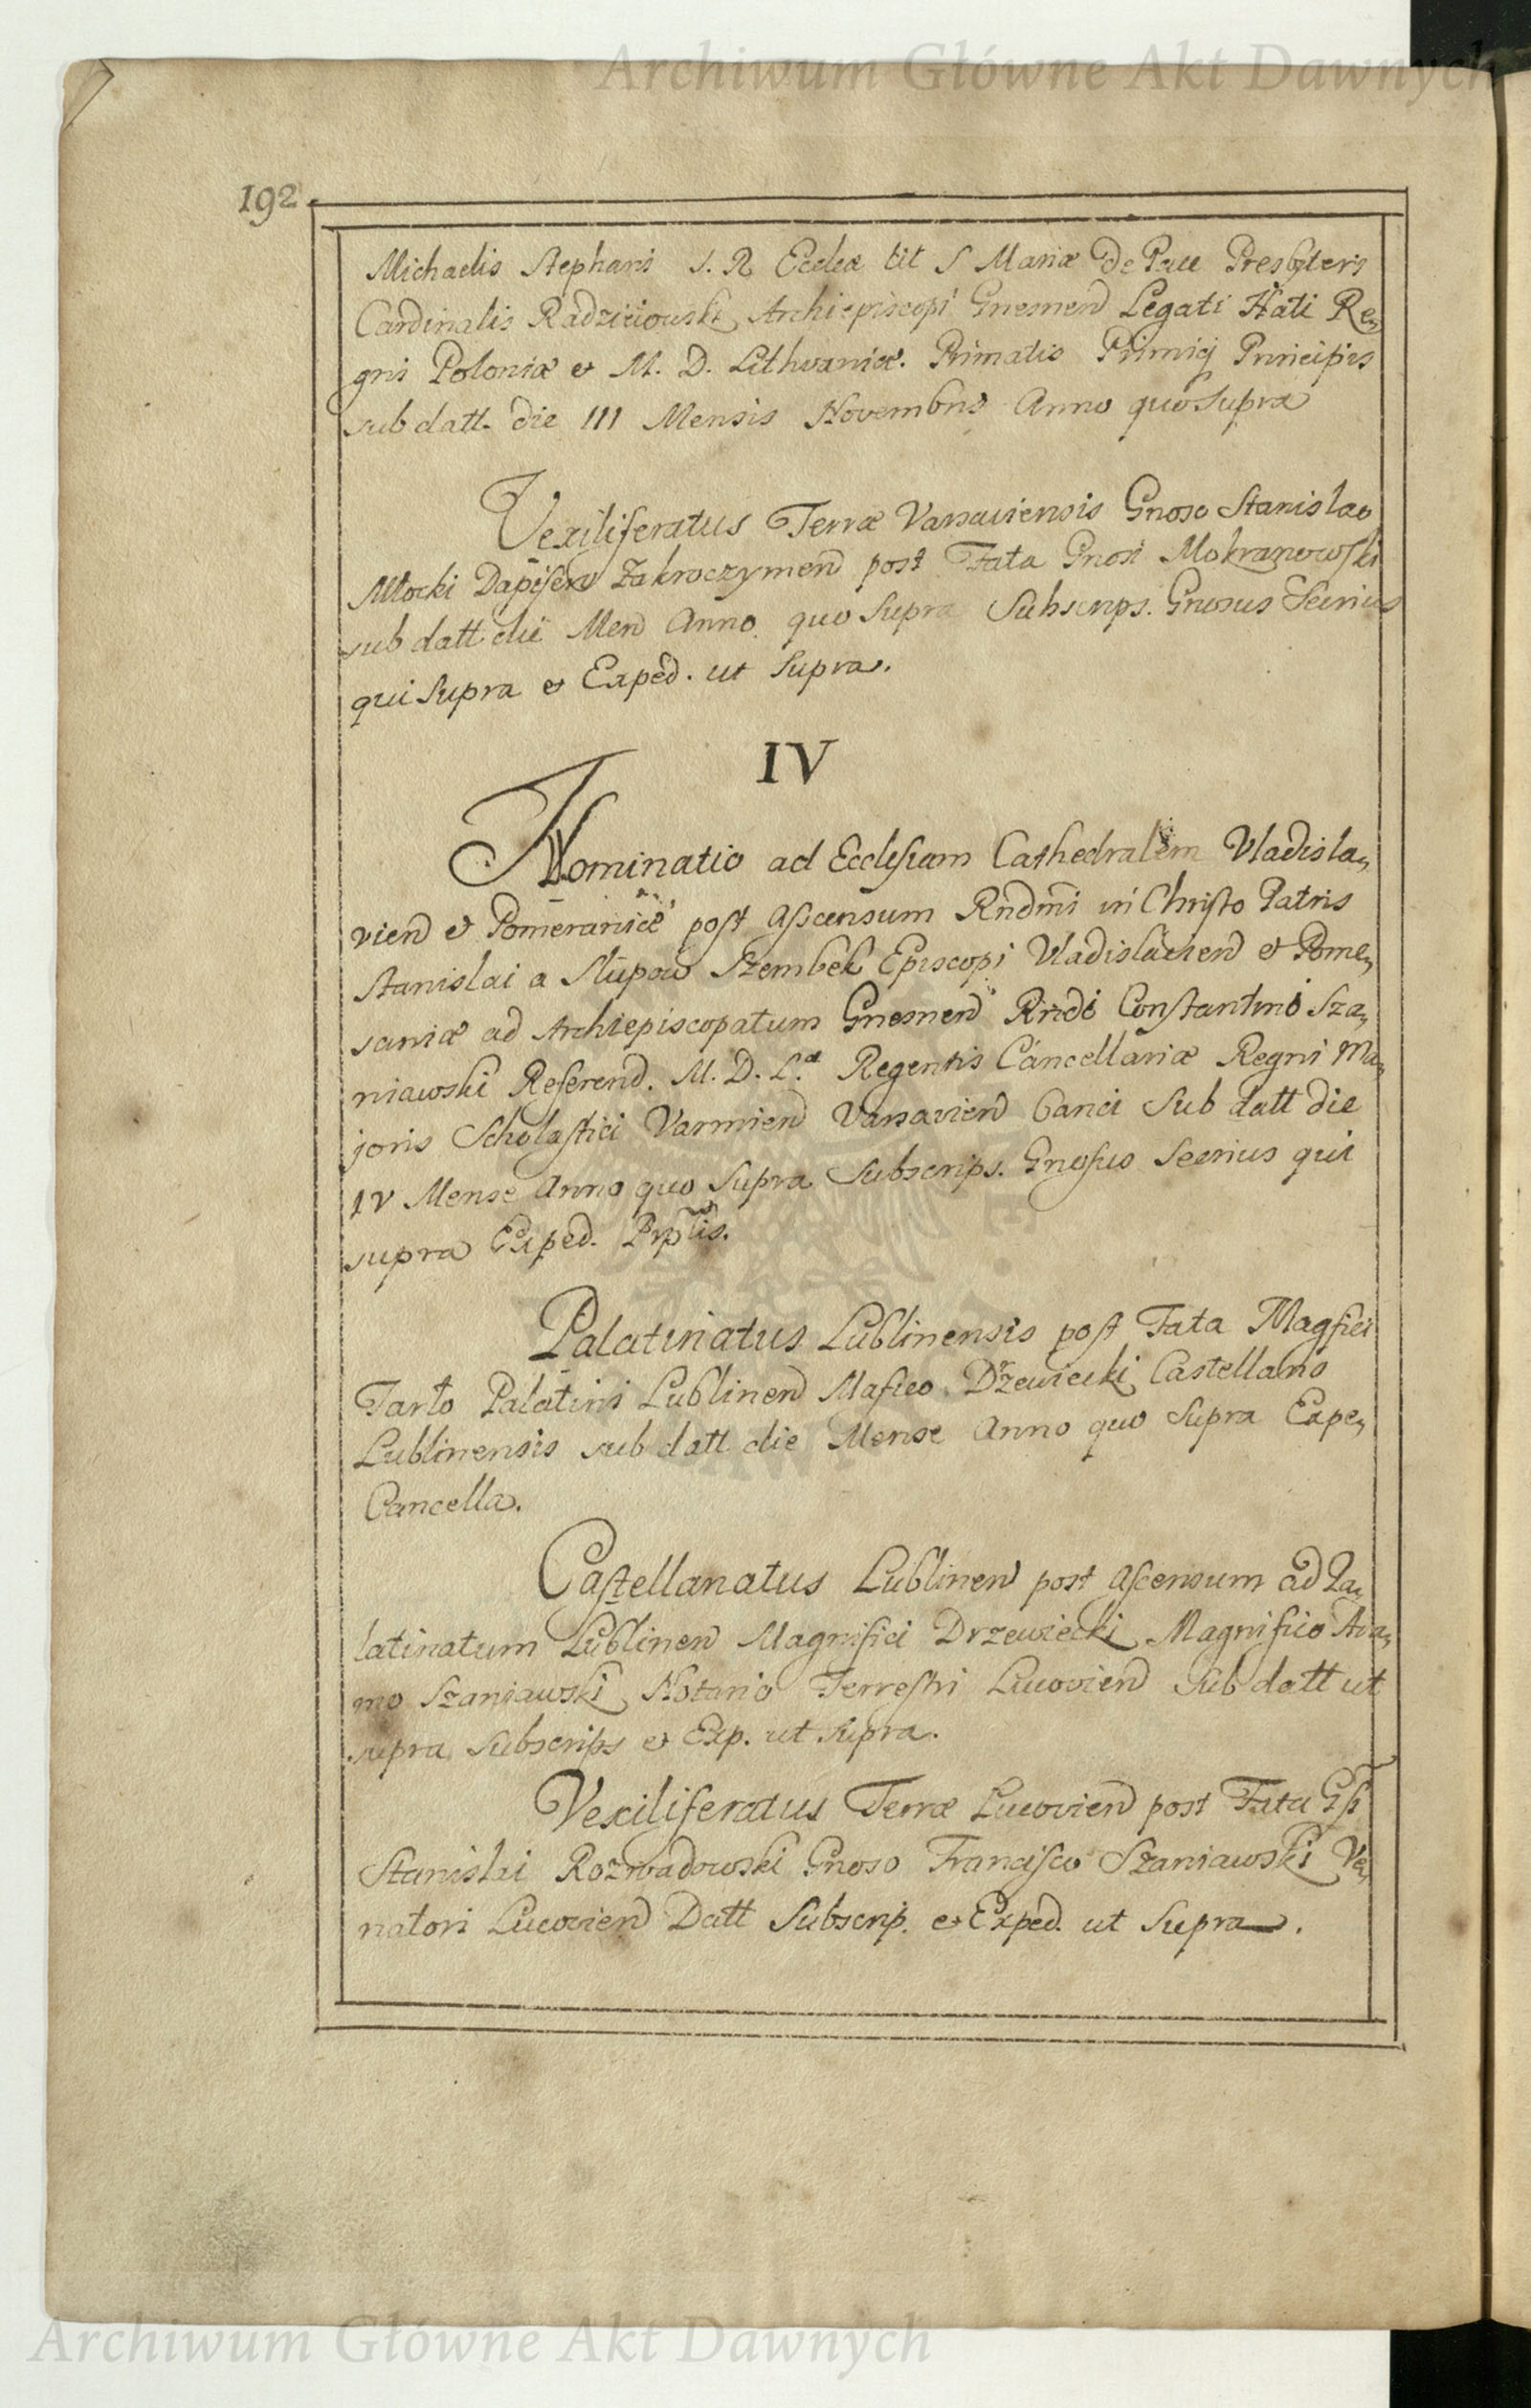 Archiwum Główne Akt Dawnych
192
Michaelis Stephani S. R. Ecclæ tit S Mariæ De Pace Presbyteri
Cardinalis Radzieiowski Archiepiscopi Gnesnen Legati Nati Re,
gni Poloniæ et M. D. Lithvaniæ. Primatis Primiq Principis
sub datt. die III Mensis Novembris Anno quo Supra
Vexiliferatus Terræ Varsaviensis Gnoso Stanislao
Młocki Dapifero Zakroczymen post Fata Gnosi Mokranowski
sub datt die Men Anno quo Supra Subscrips. Gnosus Secrius
qui Supra et Exped. ut Supra.
IV
Nominatio ad Ecclesiam Cathedralem Vladisla,
vien et Pomeraniæ post Ascensum Rndmi in Christo Patris
Stanislai a Słupow Szembek Episcopi Vladislavien et Pome,
raniæ ad Archiepiscopatum Gnesnen Rndo Constantino Sza,
niawski Referend. M. D. L. Regentis Cancellariæ Regni Ma,
joris Scholastici Varmien Varsavien Canci Sub datt die
IV Mense Anno quo Supra Subscrips. Gnosus Secrius qui
supra Exped.
Palatinatus Lublinensis post Fata Magfici
Tarło Palatini Lublinen Mafico Drzewiecki Castellano
Lublinensis sub datt die Mense Anno quo Supra Expe,
Cancella.
Castellanatus Lublinen post Ascensum ad Pa,
latinatum Lublinen Magnifici Drzewiecki Magnifico Ada,
mo Szaniawski Notario Terrestri Lucovien Sub datt ut
supra Subscrips et Exp. ut Supra.
Vexiliferatus Terræ Lucovien post Fata Gsi
Stanislai Rozwadowski Gnoso Francisco Szaniawski Ve,
natori Lucovien Datt Subscrip. et Exped. ut Supra.
Archiwum Główne Akt Dawnych